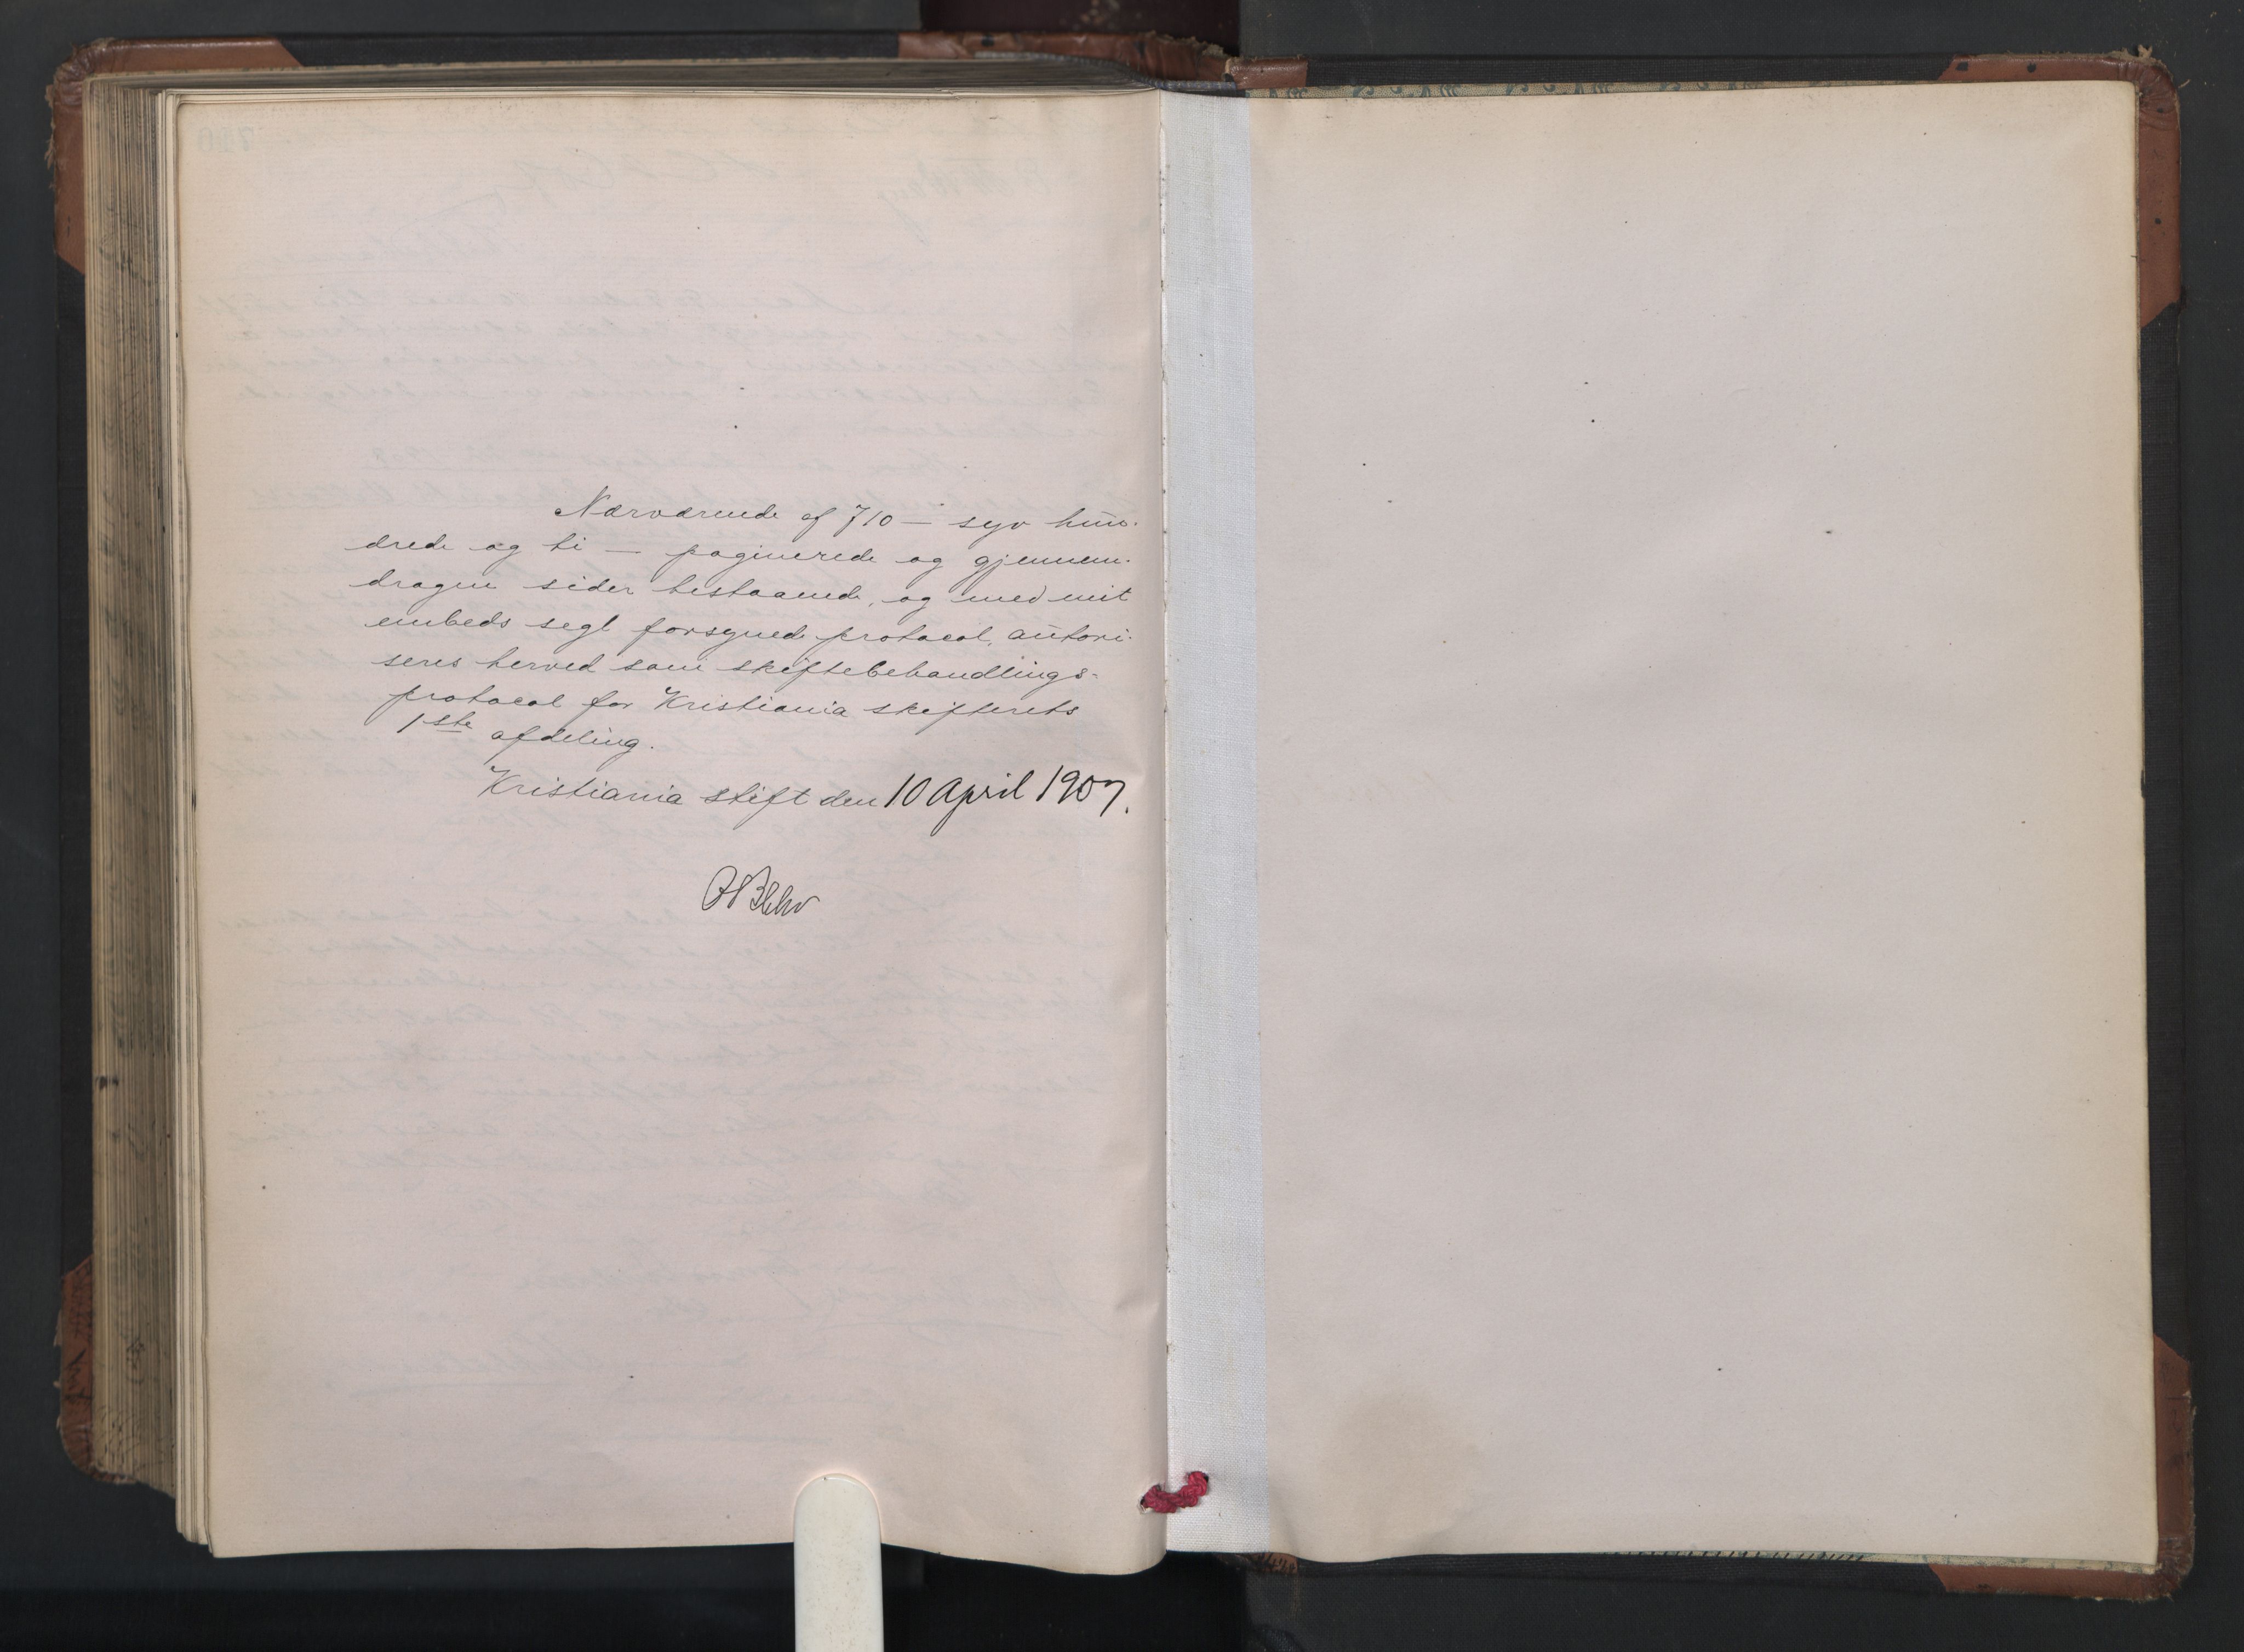 Nærværende af 710 — syv hun-
drede og ti — paginerede og gjennem-
dragne sider bestaaende, og med mit
embeds segl forsynede protocol, autori-
seres herved som skiftebehandlings-
protocol for Kristiania skifterets
1ste afdeling.
Kristiania stift den 10 April 1907.